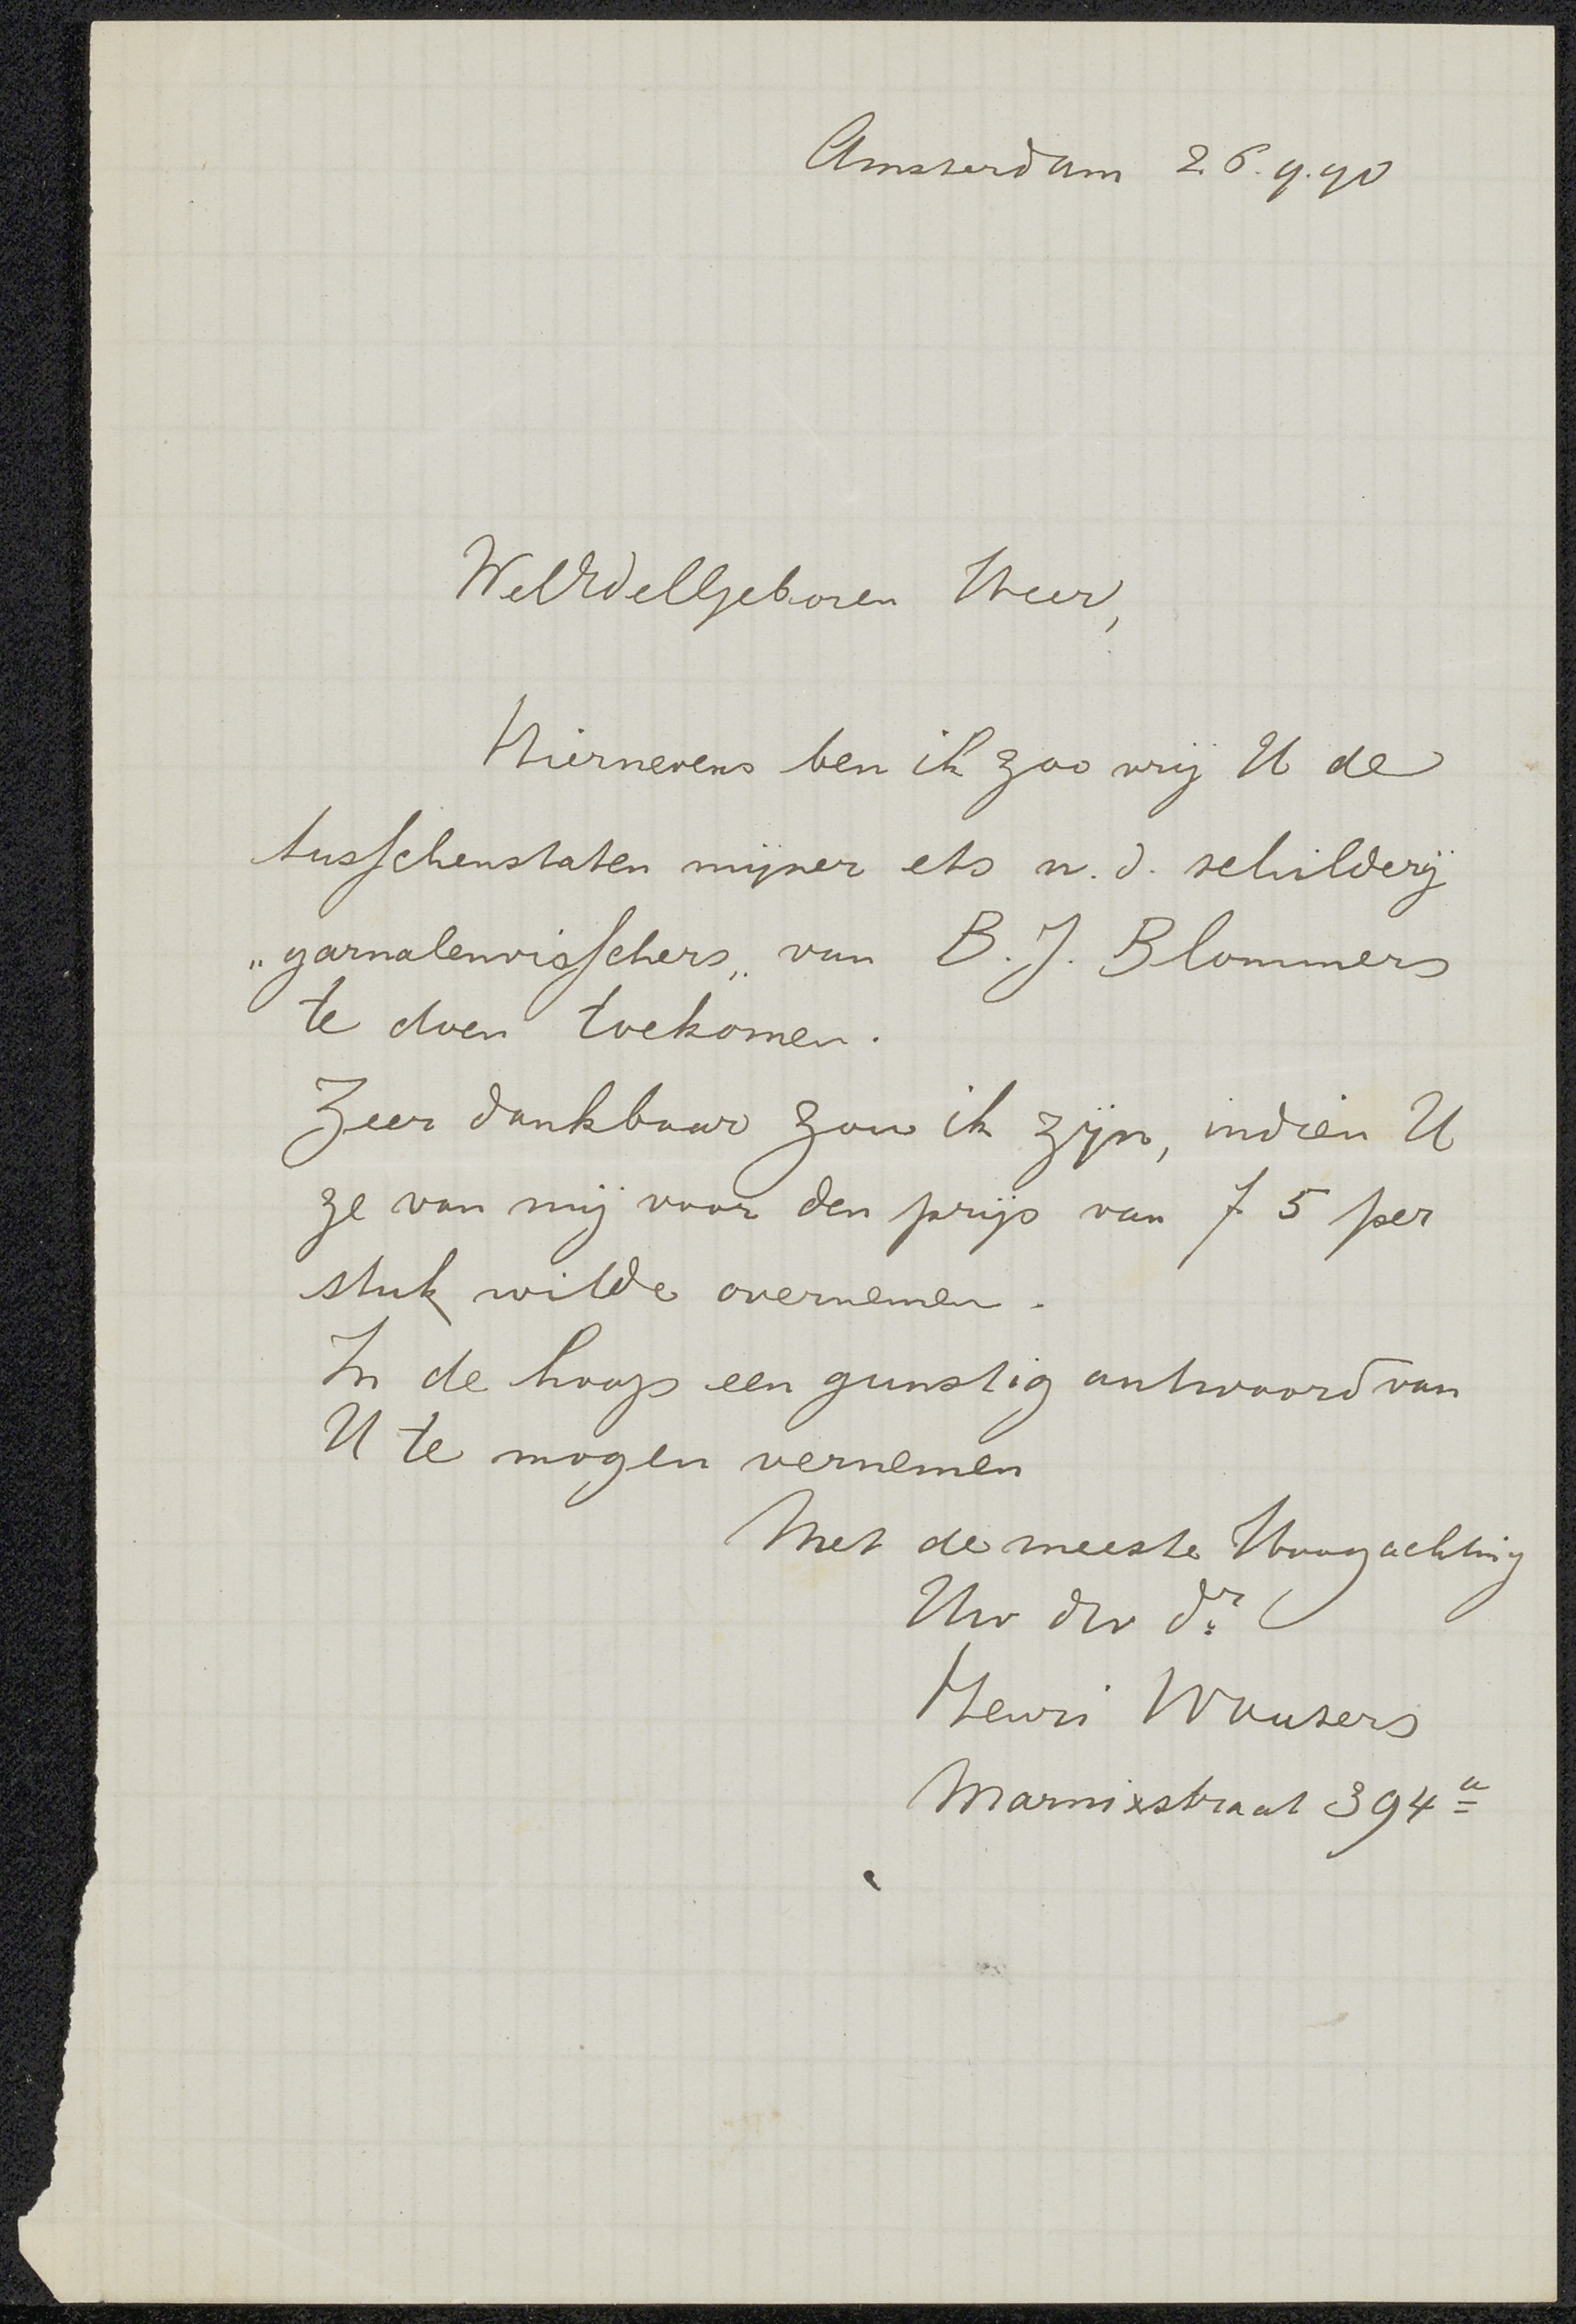 Amsterdam 26.9.90
WelEdelGeboren Heer,
Hiernevens ben ik zoo vrij U de
tusschenstaten mijner ets n. d. schilderij
„garnalenvisschers„ van B. J. Blommers
te doen toekomen.
Zeer dankbaar zou ik zijn, indien U
ze van mij voor den prijs van f 5 per
stuk wilde overnemen.
In de hoop een gunstig antwoord van
U te mogen vernemen
Met de meeste Hoogachting
Uw dw dr
Henri Wouters
Marnixstraat 394a